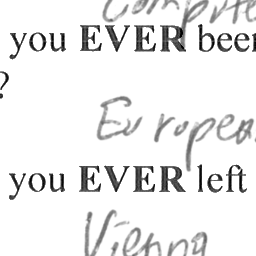 Compute
you EVER been
?
European
you EVER left
Vienna